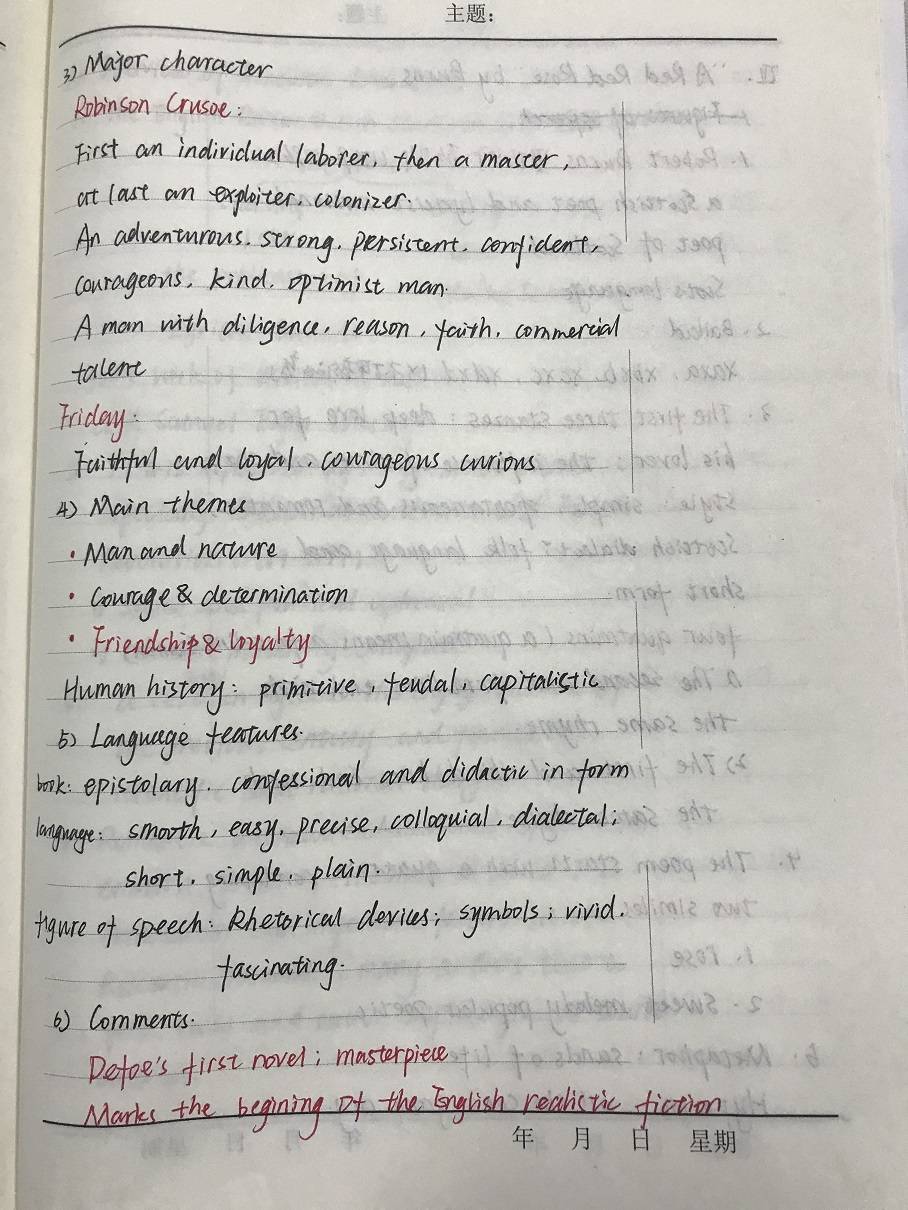 主题：
3) Major character
Robinson Crusoe:
First an individual laborer, then a master,
at last an exploiter, colonizer.
An adventurous, strong, persistent, confident,
courageous, kind, optimist man.
A man with diligence, reason, faith, commercial
talent
Friday:
Faithful and loyal, courageous curious
4) Main themes
• Man and nature
• Courage & determination
• Friendship & loyalty
Human history: primitive, feudal, capitalistic
5) Language features.
book: epistolary, confessional and didactic in form
language: smooth, easy, precise, colloquial, dialectal;
short, simple, plain.
figure of speech: Rhetorical devices; symbols; vivid.
fascinating.
6) Comments.
Defoe's first novel; masterpiece
Marks the begining of the English realistic fiction
年 月 日 星期